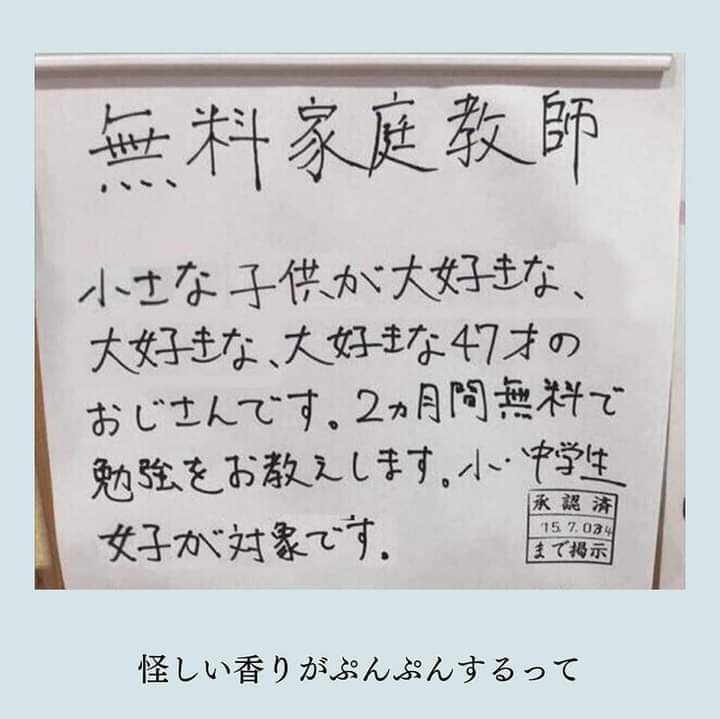 無料家庭教師
小さな子供が大好きな、
大好きな、大好きな47才の
おじさんです。2ヵ月間無料で
勉強をお教えします。小・中学生
女子が対象です。
承認済
まで掲示
怪しい香りがぷんぷんするって